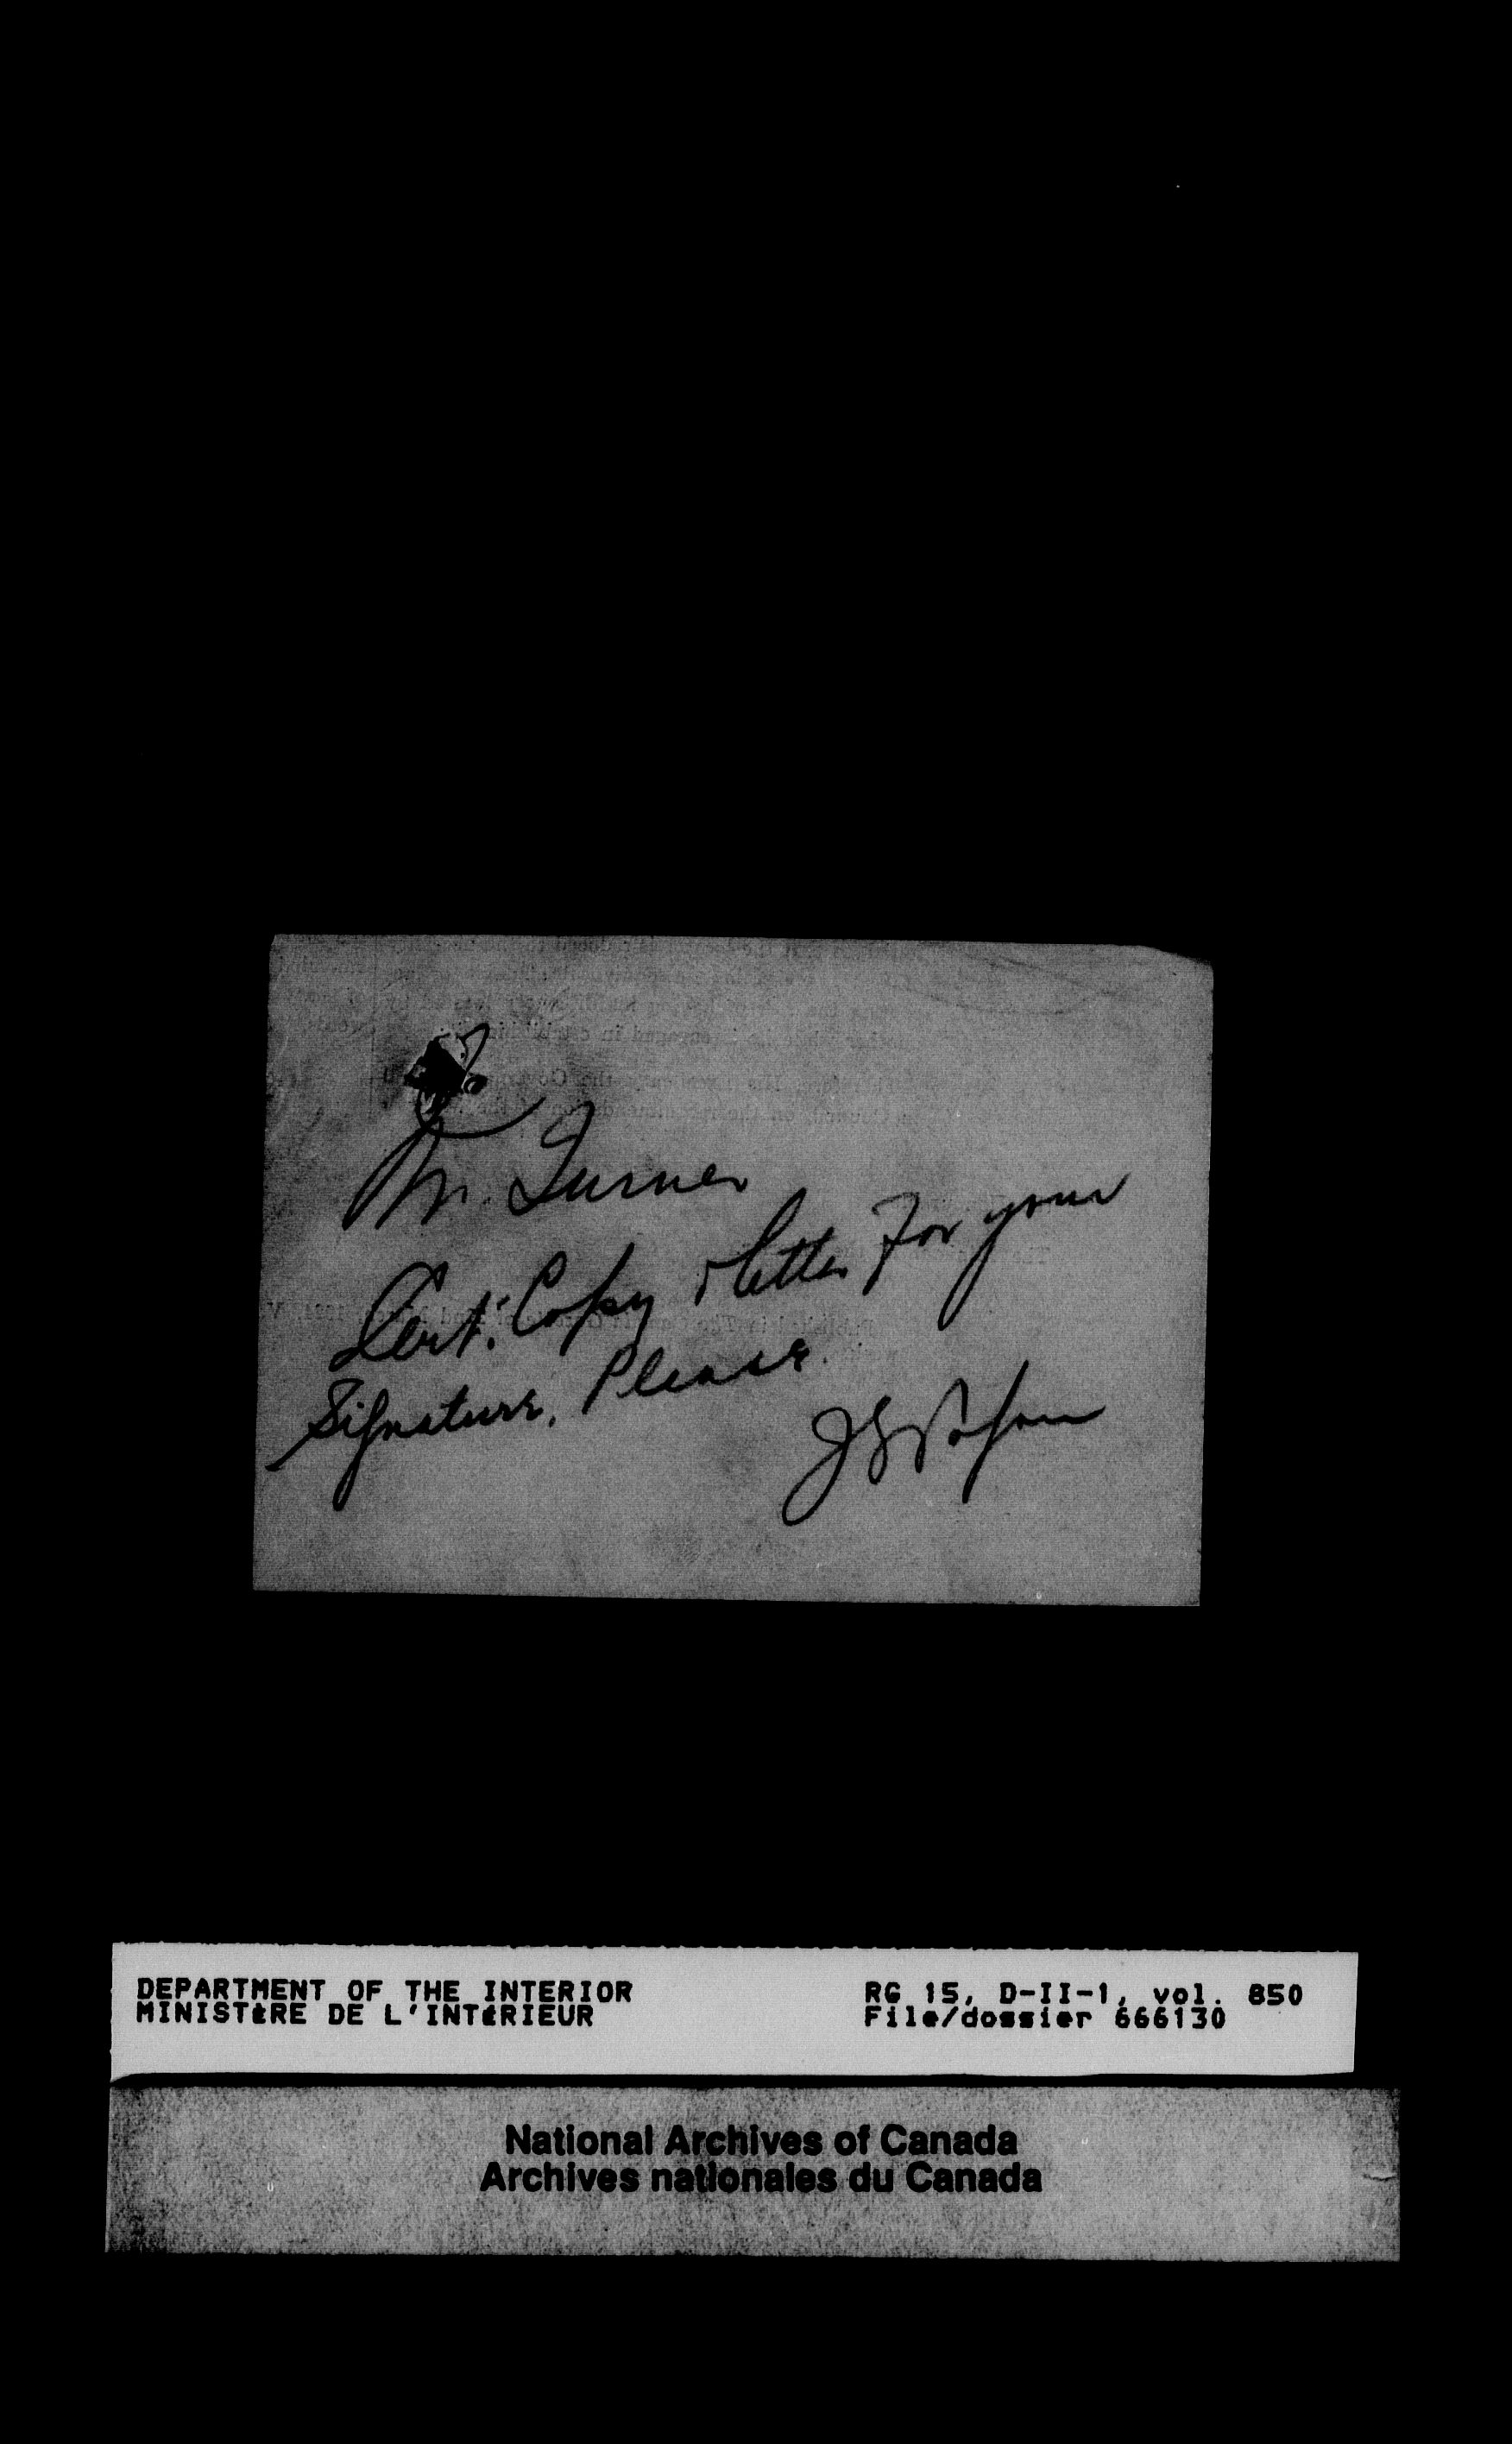 Mr. Turner
Cert. Copy & letter for your
Signature, Please.
DEPARTMENT OF THE INTERIOR
MINISTÈRE DE L'INTÉRIEUR
RG 15, D-II-1, vol. 850
File/dossier 666130
National Archives of Canada
Archives nationales du Canada